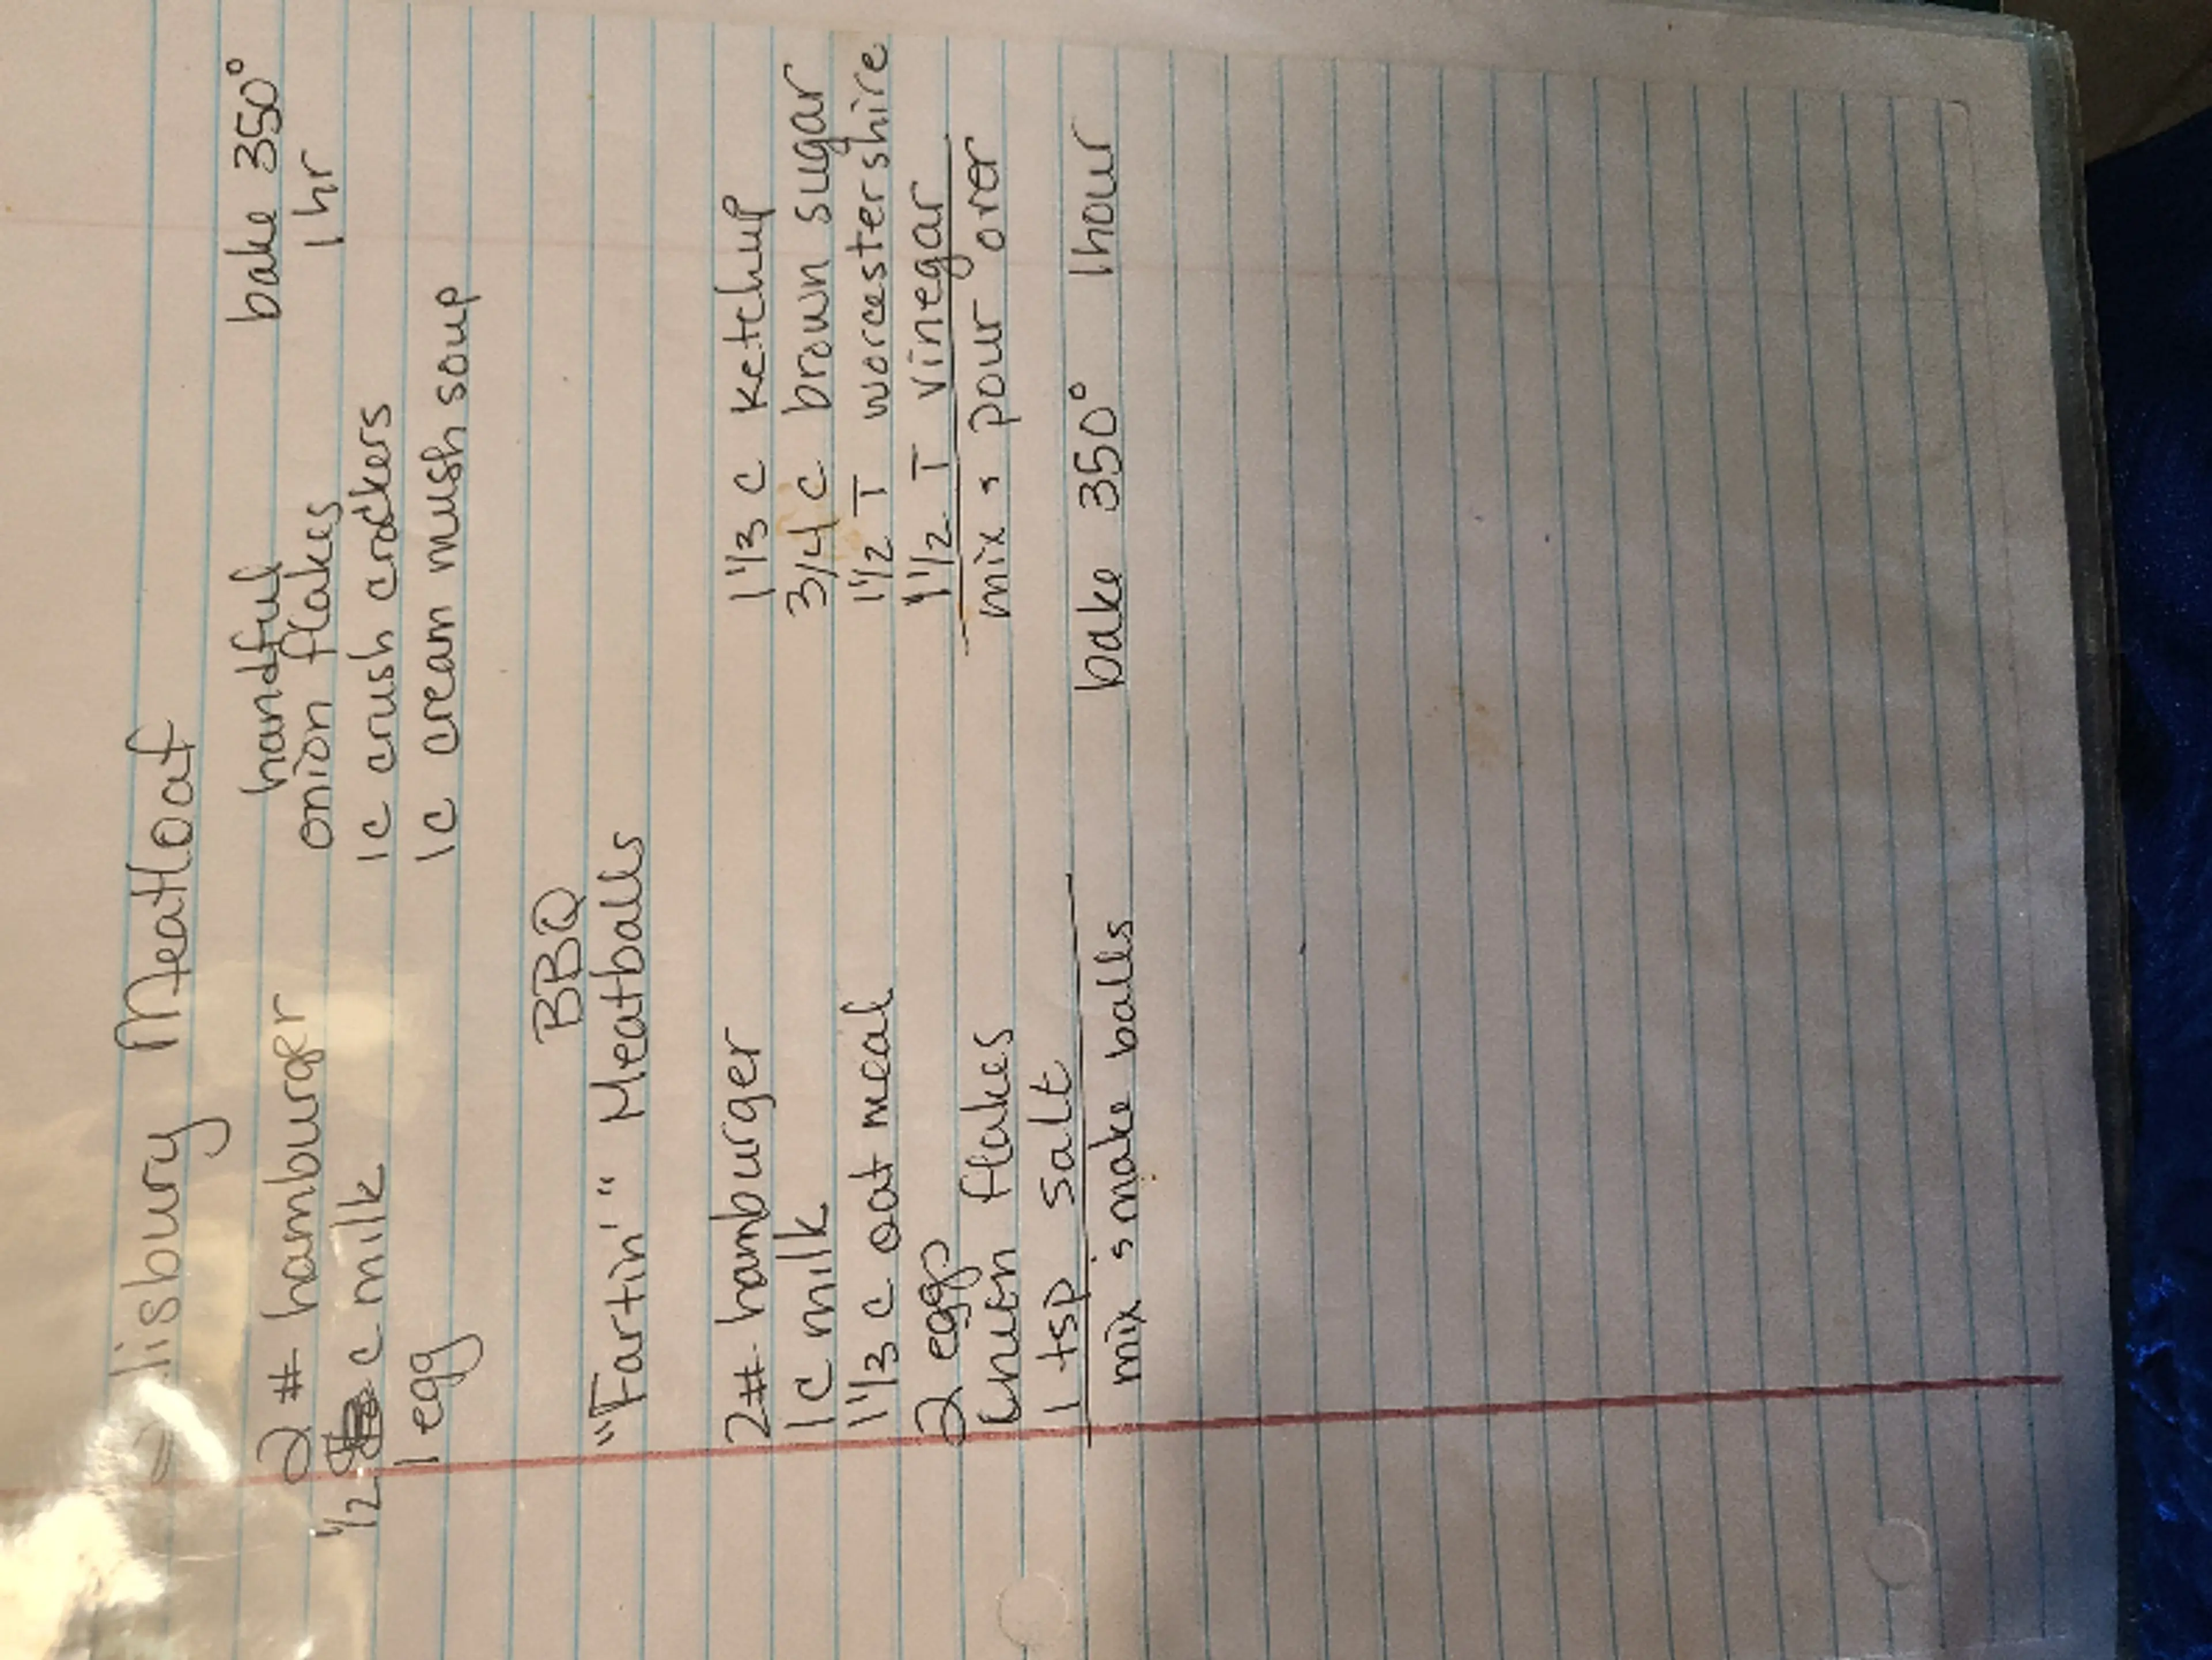 lisbury Meatloaf
2 # hamburger handful bake 350°
½ c milk onion flakes 1 hr
1 egg 1c crush crackers
1c cream mush soup
BBQ
"Fartin'" Meatballs
2# hamburger 1⅓ c ketchup
1c milk 3/4 c brown sugar
1⅓ c oat meal 1½ T worcestershire
2 eggs 1½ T vinegar
onion flakes mix & pour over
1 tsp salt
mix & make balls bake 350° 1 hour